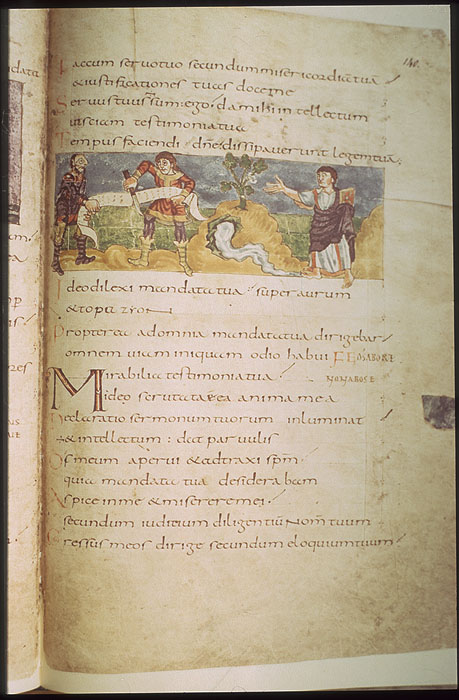 140
Faccum seruotuo secundummisericordiatua
&iustificationes tuas doceme
Seruustuussum ego· damihi intellectum
utsciam testimoniatua
Tempus faciendi dne dissipauerunt legemtua;
Ideodilexi mandatatua super aurum
&topazion
Propterea adomnia mandatatua dirigebar
omnem uiam iniquam odio habui
Mirabilia testimoniatua
ideo scrutata ea anima mea
Declaratio sermonumtuorum inluminat
&intellectum dat paruulis
Osmeum aperui &adtraxi spm
quia mandata tua desiderabam
Aspice inme &misereremei·
secundum iuditium diligentiu Nom tuum
Gressus meos dirige secundum eloquiumtuum